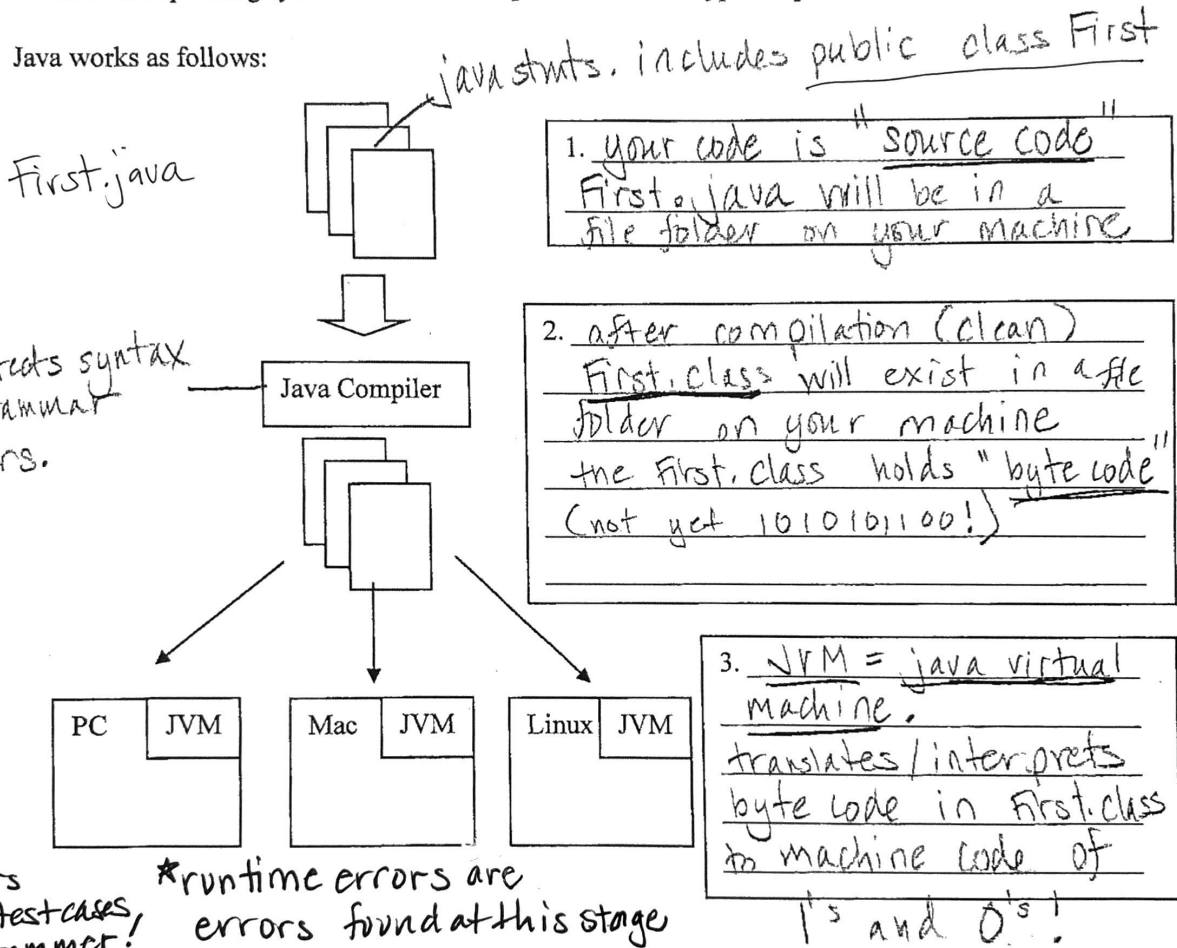 Java works as follows:
java stmts. includes public class First
First.java
1. your code is "source code"
First.java will be in a
file folder on your machine
2. after compilation (clean)
First.class will exist in a file
folder on your machine
the First.class holds "byte code"
(not yet 1010101100!)
syntax
Java Compiler
PC JVM
Mac JVM
Linux JVM
3. JVM = java virtual
machine.
translates/interprets
byte code in First.class
to machine code of
1's and 0's!
*runtime errors are
errors found at this stage
test cases,